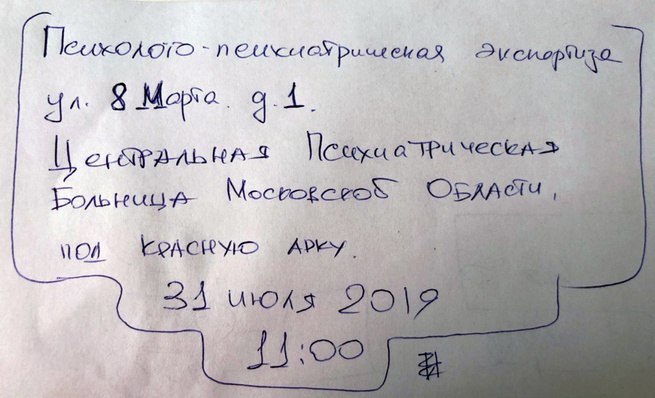 Психолого-психиатрическая экспертиза
ул. 8 Марта. д.1.
Центральная Психиатрическая
Больница Московской Области,
под красную арку.
31 июля 2019
11:00